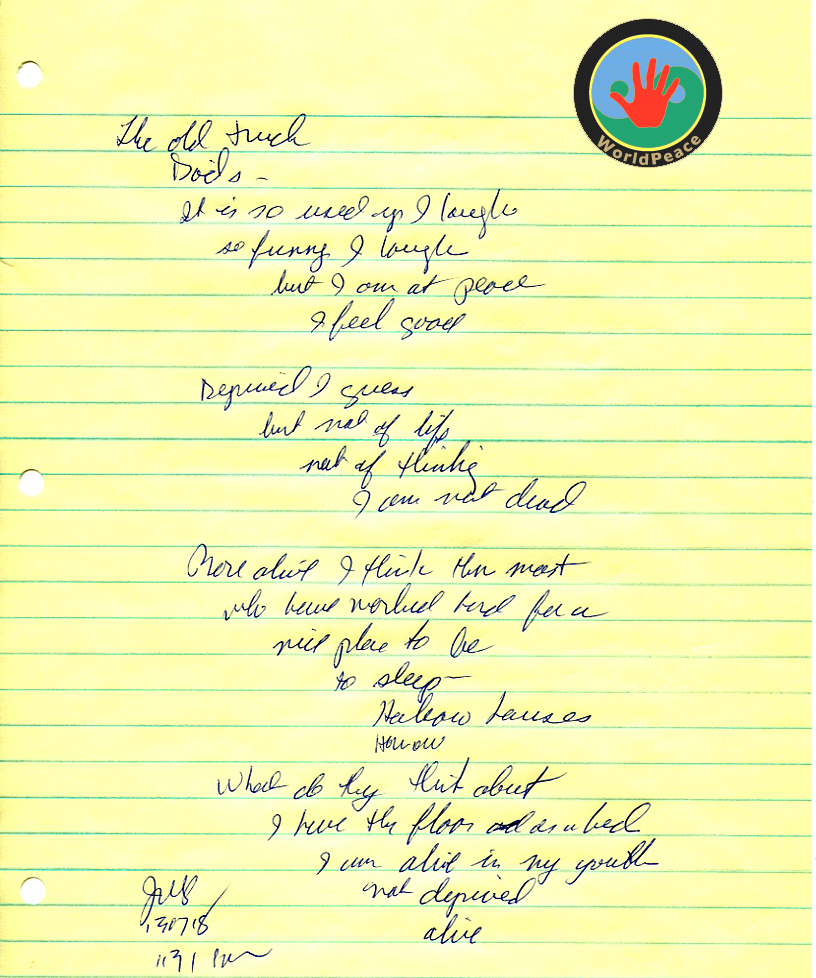 WorldPeace
The old truck
Boils -
It is so used up I laugh
so funny I laugh
but I am at peace
I feel good
Deprived I guess
but not of life
not of thinking
I am not dead
More alive I think than most
who have worked hard for a
nice place to be
to sleep-
Hollow houses
Hollow
What do they think about
I have the floor as a bed
I am alive in my youth
not deprived
alive
130718
1131 PM